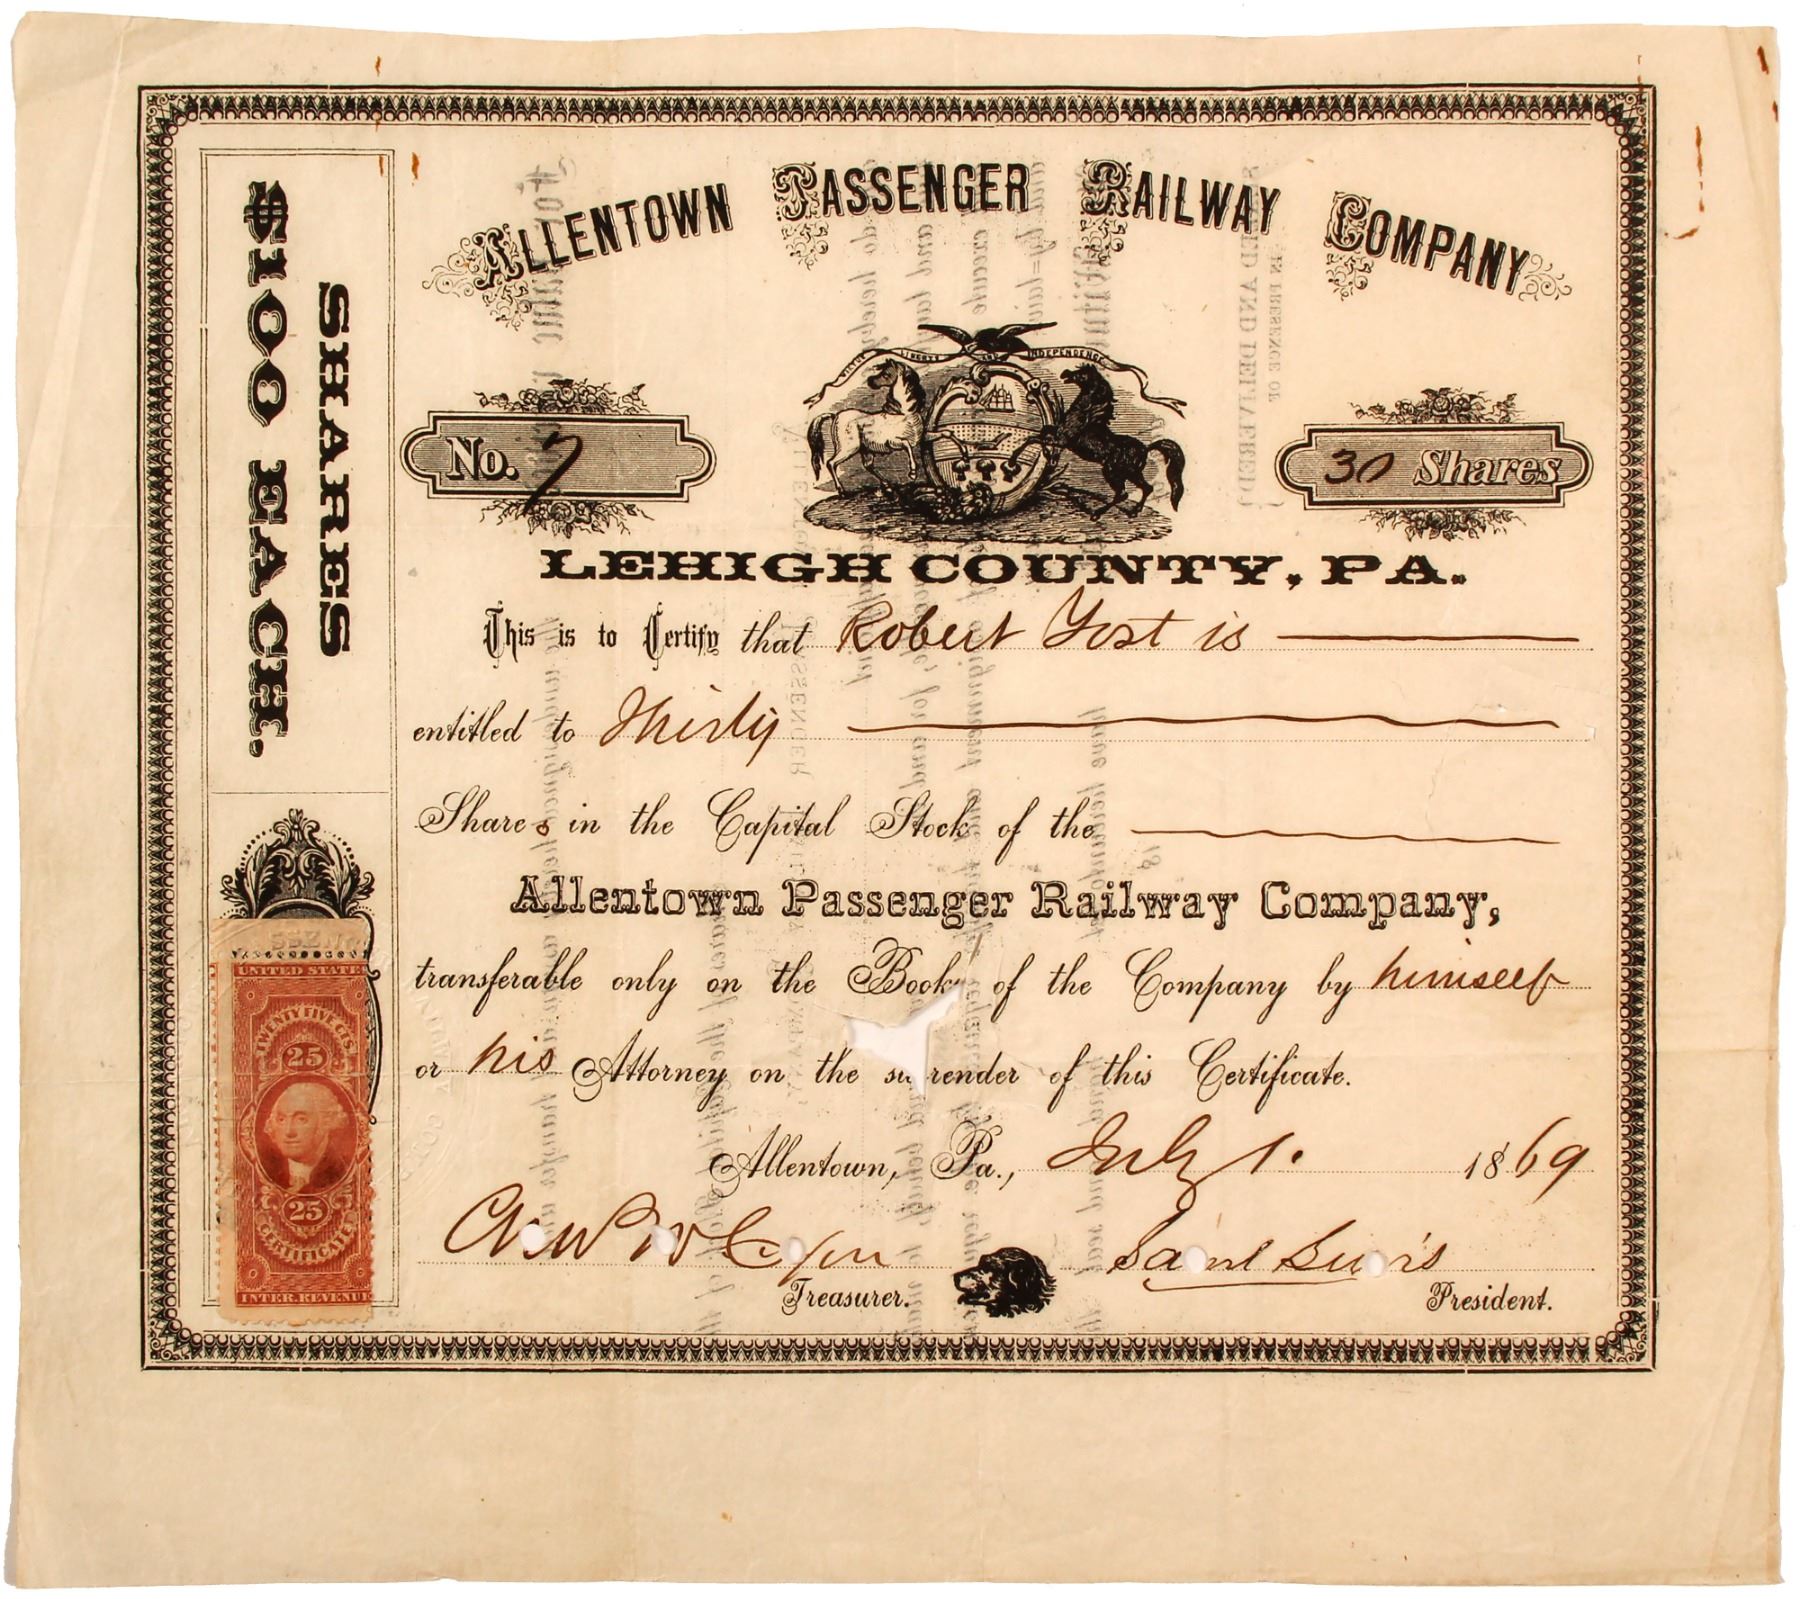 ALLENTOWN PASSENGER RAILWAY COMPANY
SHARES
$100 EACH.
LIBERTY AND INDEPENDENCE
No. 7
30 Shares
LEHIGH COUNTY, PA.
This is to Certify that Robert Yost is
entitled to Thirty
Shares in the Capital Stock of the
Allentown Passenger Railway Company,
transferable only on the Book of the Company by himself
or his Attorney on the surrender of this Certificate.
Allentown, Pa., July 1. 1869
Sam'l Lewis
Treasurer.
President.
UNITED STATES
TWENTY FIVE CTS.
25
25
CERTIFICATE
INTER. REVENUE